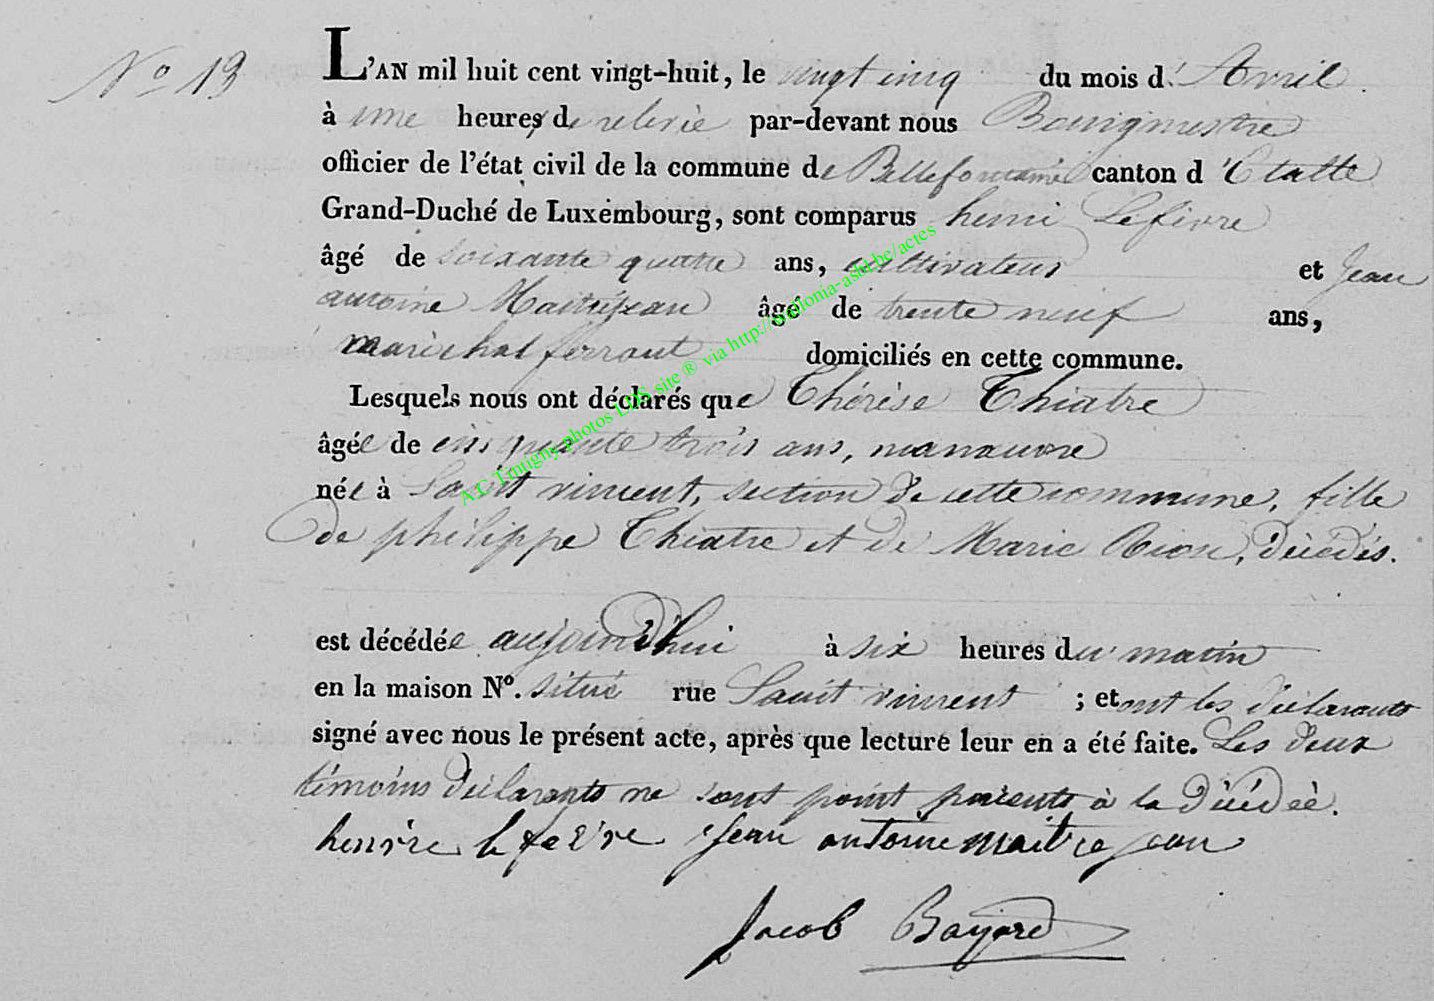 No 13
L'AN mil huit cent vingt-huit, le vingt cinq du mois d'Avril
à une heures de relevée par-devant nous Bourgmestre
officier de l'état civil de la commune de Bellefontaine canton d'Etalle
Grand-Duché de Luxembourg, sont comparus henri Lefèvre
âgé de soixante quatre ans, cultivateur et Jean
antoine Maitrejean âgé de trente neuf ans,
maréchal ferrant domiciliés en cette commune.
Lesquels nous ont déclarés que Thérèse Thiatre
âgée de cinquante trois ans, manœuvre
née à Saint vincent, section de cette commune, fille
de philippe Thiatre et de Marie Rion, décédés.
est décédée aujourd'hui à six heures du matin
en la maison N°. situé rue Saint vincent ; et ont les déclarants
signé avec nous le présent acte, après que lecture leur en a été faite. Les deux
témoins déclarants ne sont point parents à la décédée.
henrire le fe2vre Jean antoine maitre jean
Jacob Bayard
A.C Tintigny photos LDS site ® via http://wallonia-asbl.be/actes